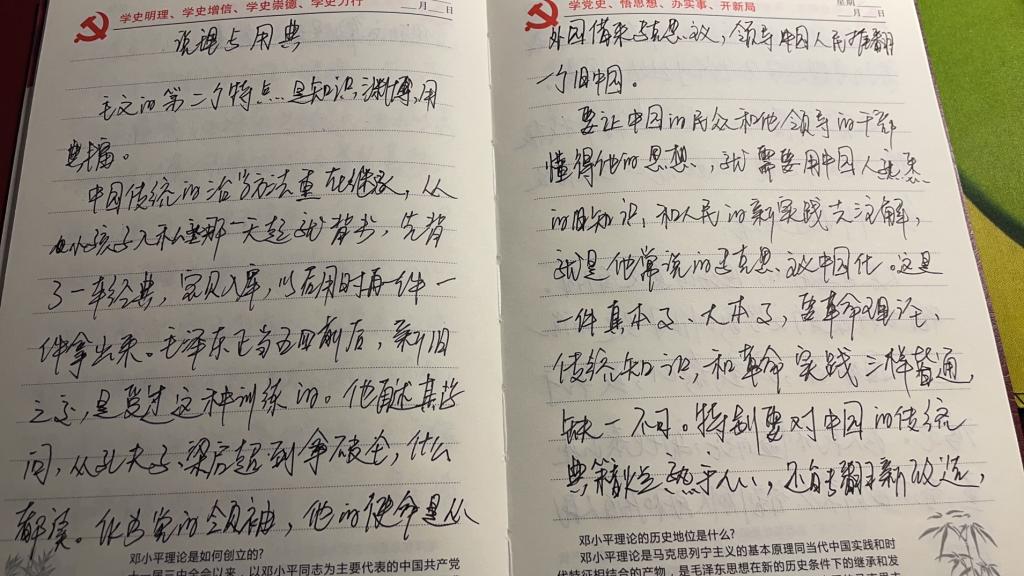 学史明理、学史增信、学史崇德、学史力行
月 日
说理与用典
毛文的第二个特点是知识渊博,用
典丰富。
中国传统的治学方法重在继承,从
小孩子入私塾那一天起就背书,先背
了一车经典,宝贝入库,以后用时再一件一
件拿出来。毛泽东正当五四前后,新旧
之交,是受过这种训练的。他自述其学
问,从孔夫子、梁启超到拿破仑,什么
都读。作为党的领袖,他的使命是从
邓小平理论是如何创立的?
十一届三中全会以来,以邓小平同志为主要代表的中国共产党
学党史、悟思想、办实事、开新局
星期
月 日
外国借来马克思主义,领导中国人民推翻
一个旧中国。
要让中国的民众和他领导的干部
懂得他的思想,就需要用中国人熟悉
的旧知识,和人民的新实践去注解,
就是他常说的马克思主义中国化。这是
一件真本事、大本事,要革命理论、
传统知识,和革命实践三样皆通,
缺一不可。特别要对中国的传统
典籍烂熟于心,还能翻新改造,
邓小平理论的历史地位是什么?
邓小平理论是马克思列宁主义的基本原理同当代中国实践和时
代特征相结合的产物,是毛泽东思想在新的历史条件下的继承和发